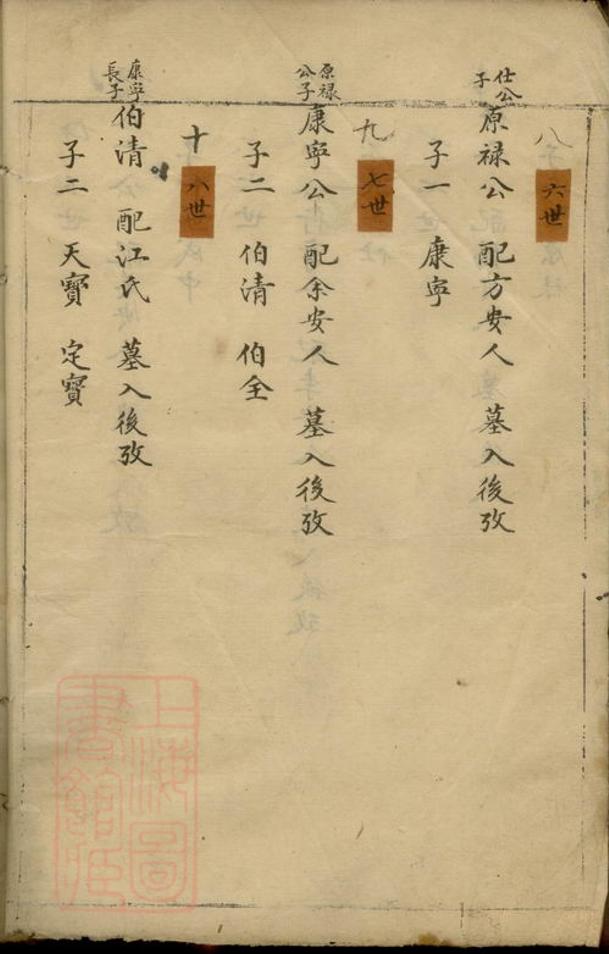 八 六世
仕公子
原禄公 配方安人 墓入後攷
子一 康寧
九 七世
原禄公子
康寧公 配余安人 墓入後攷
子二 伯清 伯全
十 八世
康寧長子
伯清 配江氏 墓入後攷
子二 天寶 定寶
上海圖書館藏